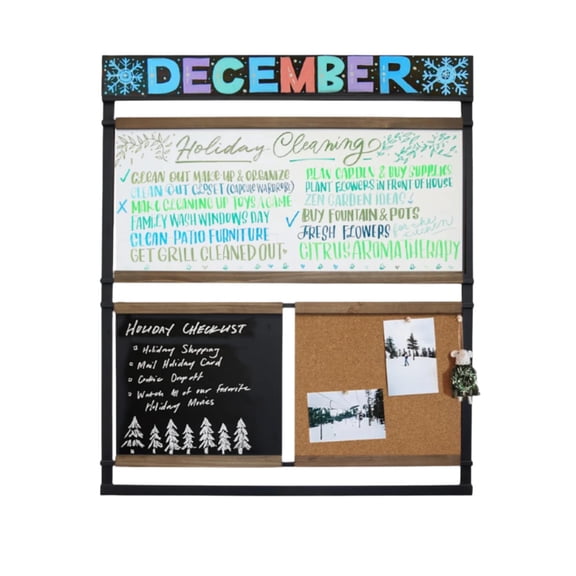 DECEMBER
Holiday Cleaning
✓ CLEAN OUT MAKE UP & ORGANIZE
CLEAN OUT CLOSET (CAPSULE WARDROBE)
X MAKE CLEANING UP TOYS A GAME
FAMILY WASH WINDOWS DAY
CLEAN PATIO FURNITURE
GET GRILL CLEANED OUT
PLAN GARDEN & BUY SUPPLIES
PLANT FLOWERS IN FRONT OF HOUSE
ZEN GARDEN IDEAS
✓ BUY FOUNTAIN & POTS
FRESH FLOWERS for the kitchen
CITRUS AROMATHERAPY
HOLIDAY CHECKLIST
Holiday Shopping
Mail Holiday Card
Cookie Dropoff
Watch All of our favorite
Holiday Movies